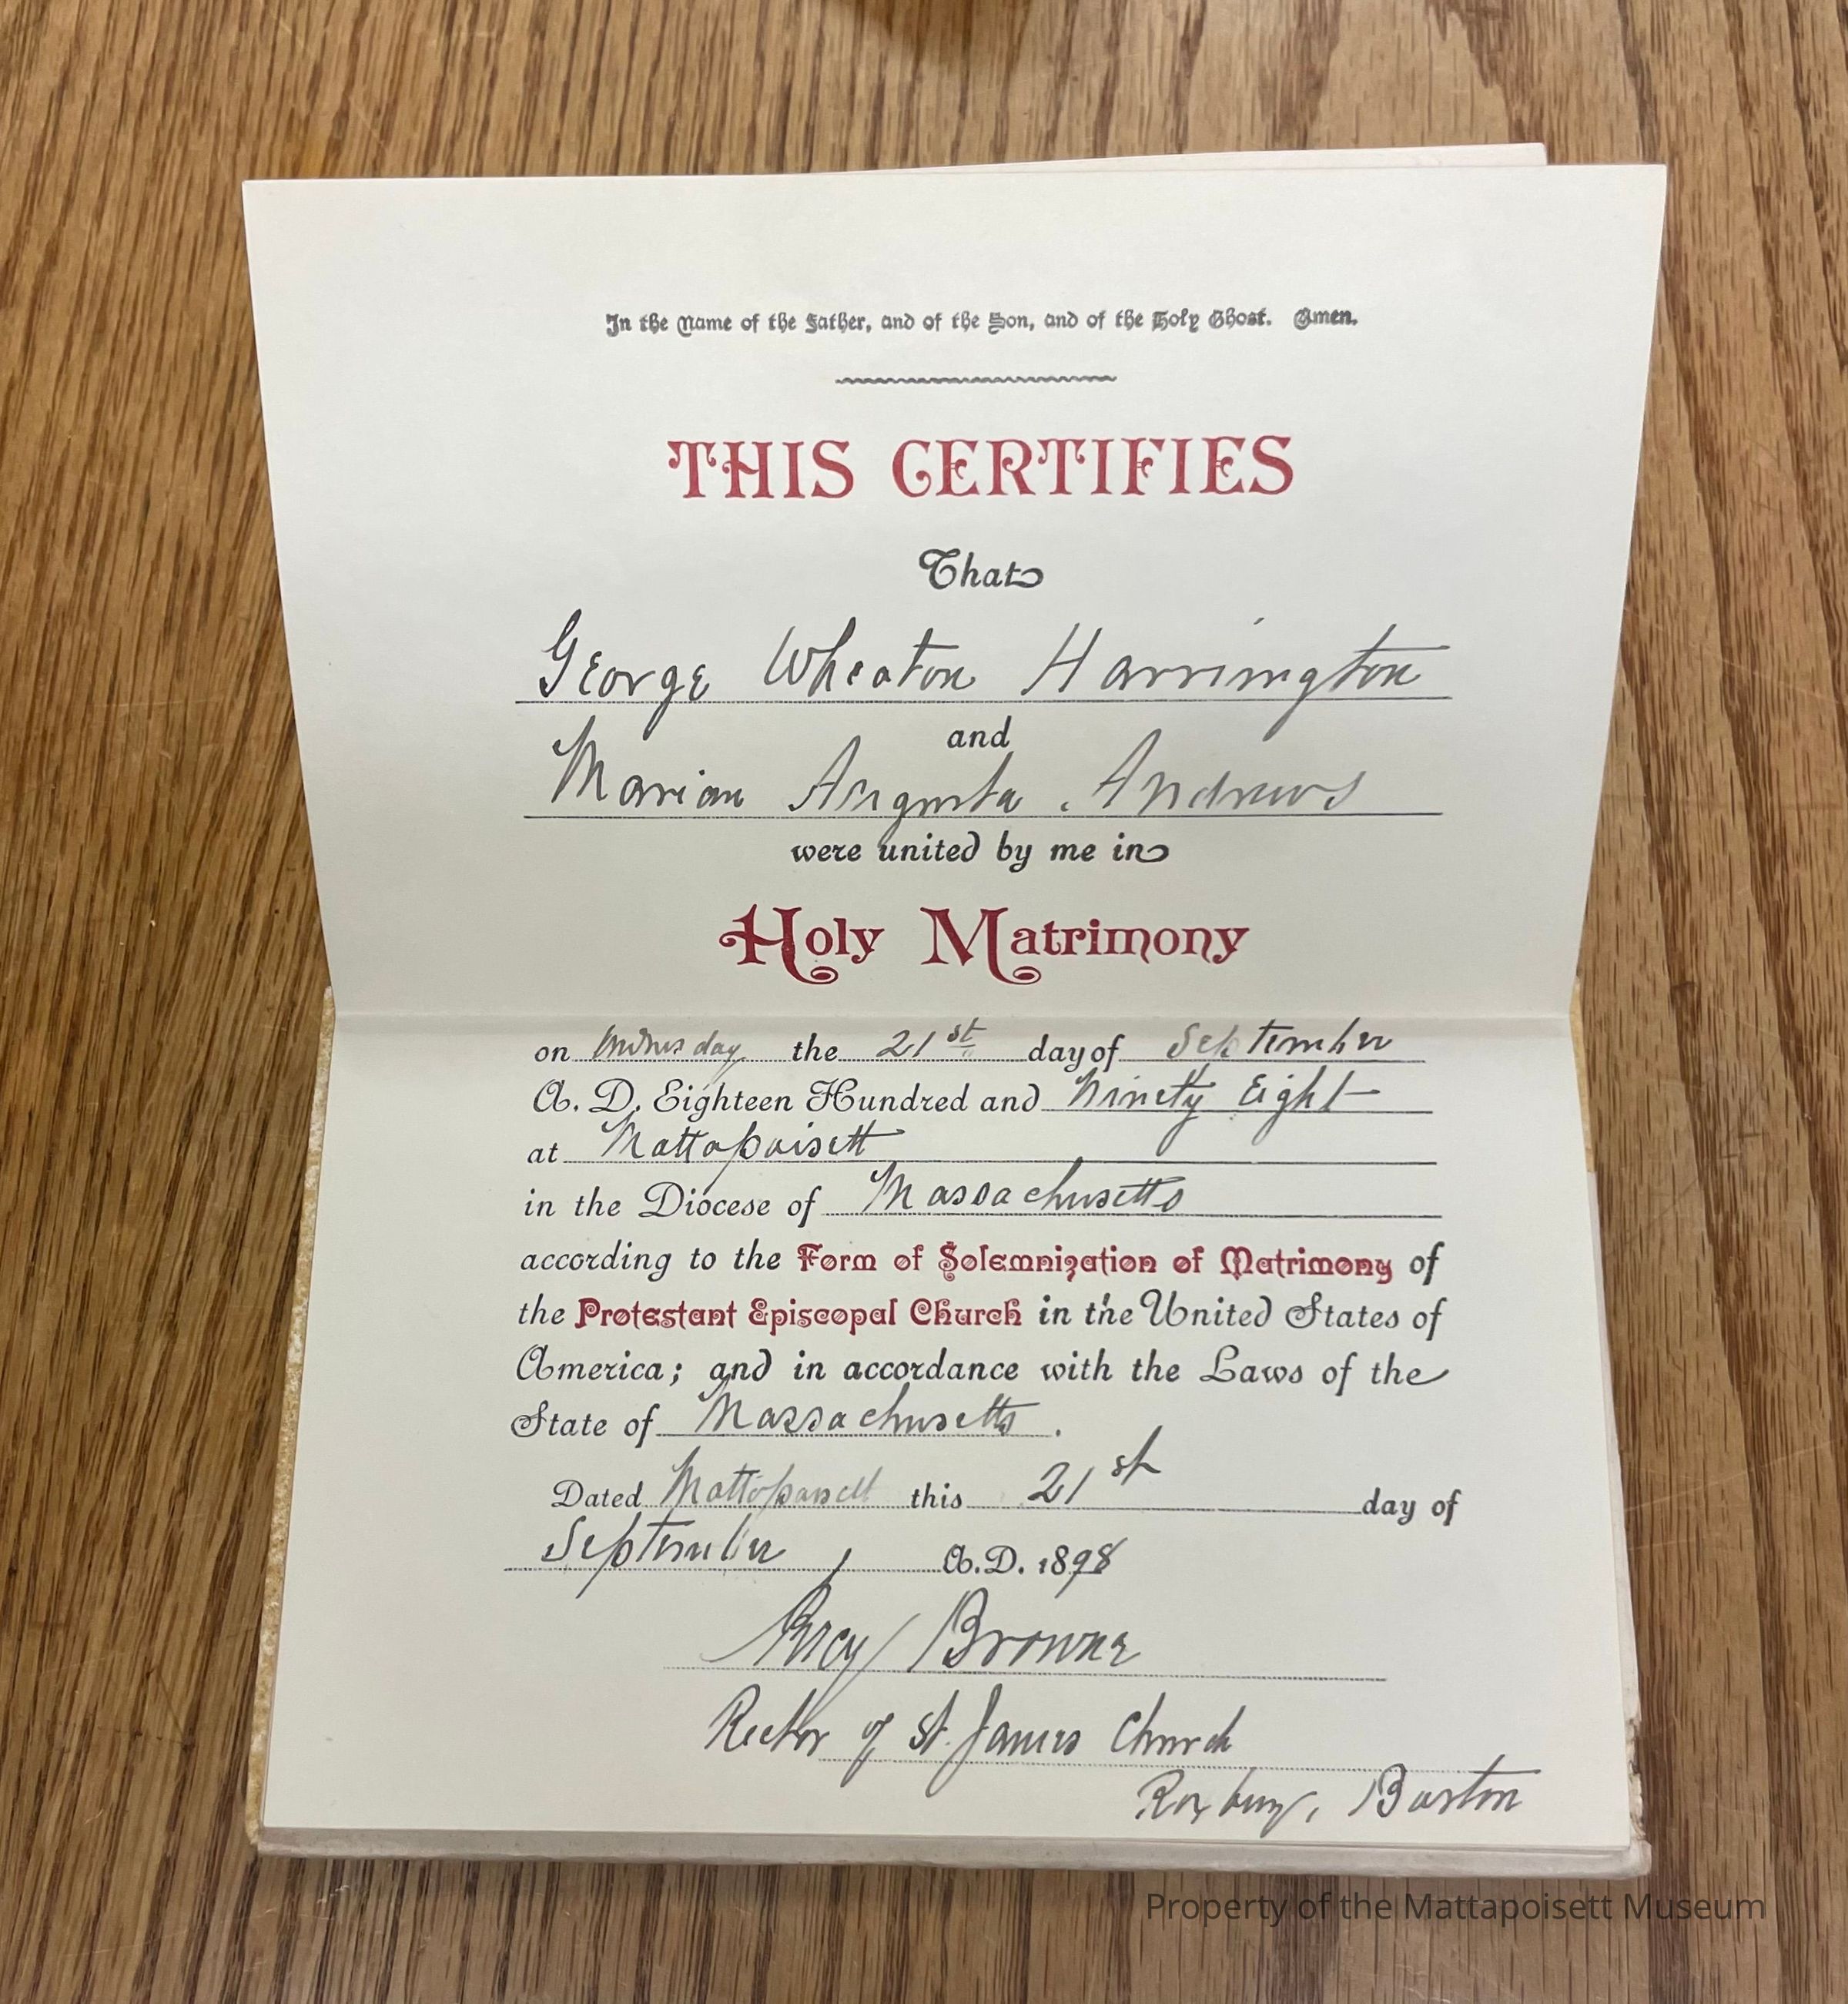 In the Name of the Father, and of the Son, and of the Holy Ghost. Amen.
THIS CERTIFIES
That
George Wheaton Harrington
and
Marian Augusta Andrews
were united by me in
Holy Matrimony
on Wednesday the 21st day of September
A. D. Eighteen Hundred and Ninety Eight
at Mattapoisett
in the Diocese of Massachusetts
according to the Form of Solemnization of Matrimony of
the Protestant Episcopal Church in the United States of
America; and in accordance with the Laws of the
State of Massachusetts.
Dated Mattapoisett this 21st day of
September, A.D. 1898
Percy Browne
Rector of St. James Church
Roxbury, Boston
Property of the Mattapoisett Museum